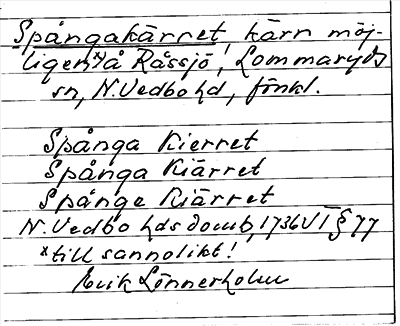 Spångakärret, kärn möj-
ligen *) å Råssjö, Lommaryds
sn, N. Vedbo hd, fönkl.
Spånga Kierret
Spånga Kiärret
Spånge Kiärret
N. Vedbo hds domb, 1736 VI § 77
*till sannolikt!
Erik Lönnerholm